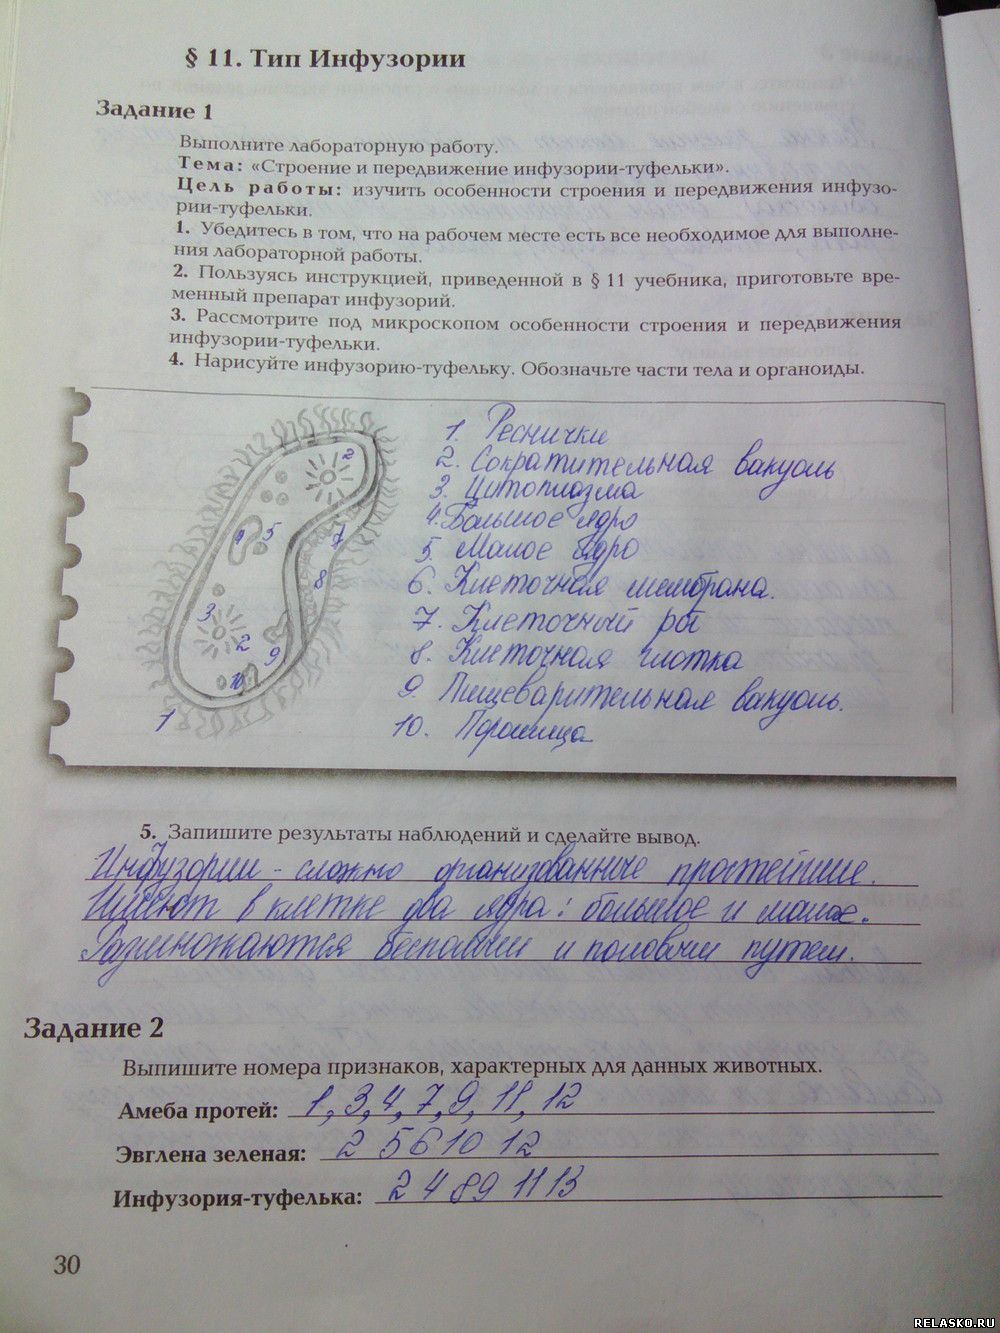 § 11. Тип Инфузории
Задание 1
Выполните лабораторную работу.
Тема: «Строение и передвижение инфузории-туфельки».
Цель работы: изучить особенности строения и передвижения инфузо-
рии-туфельки.
1. Убедитесь в том, что на рабочем месте есть все необходимое для выполне-
ния лабораторной работы.
2. Пользуясь инструкцией, приведенной в § 11 учебника, приготовьте вре-
менный препарат инфузорий.
3. Рассмотрите под микроскопом особенности строения и передвижения
инфузории-туфельки.
4. Нарисуйте инфузорию-туфельку. Обозначьте части тела и органоиды.
2
4 5 7
8
3
2
9
10
1
1. Реснички
2. Сократительная вакуоль
3. Цитоплазма
4. Большое ядро
5. Малое ядро
6. Клеточная мембрана.
7. Клеточный рот
8. Клеточная глотка
9. Пищеварительная вакуоль.
10. Порошица
5. Запишите результаты наблюдений и сделайте вывод.
Инфузории - сложно организованные простейшие.
Имеют в клетке два ядра: большое и малое.
Размножаются бесполым и половым путем.
Задание 2
Выпишите номера признаков, характерных для данных животных.
Амеба протей: 1, 3, 4, 7, 9, 11, 12
Эвглена зеленая: 2 5 6 10 12
Инфузория-туфелька: 2 4 8 9 11 13
30
RELASKO.RU